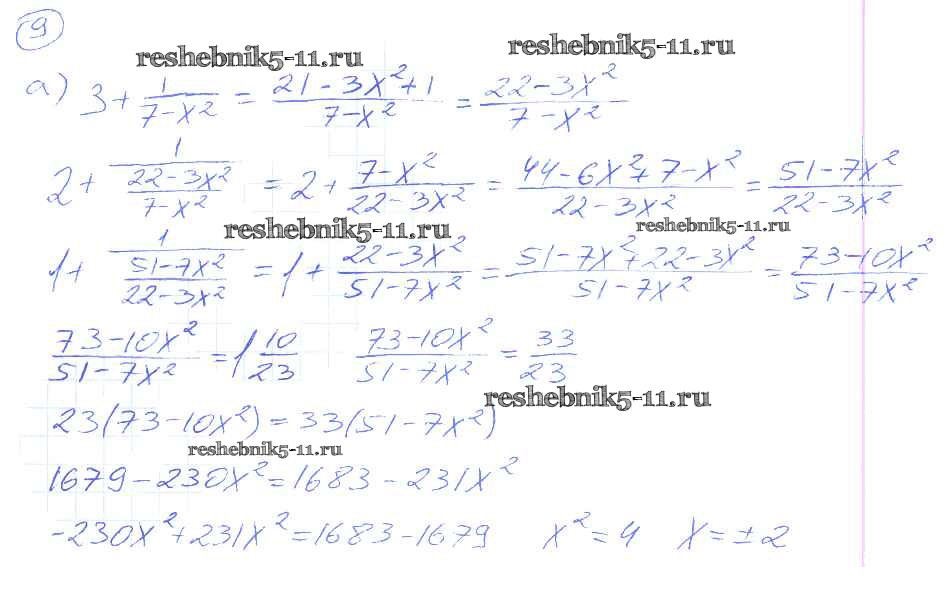 9
reshebnik5-11.ru
reshebnik5-11.ru
а) 3 + 1/(7-x²) = (21-3x²+1)/(7-x²) = (22-3x²)/(7-x²)
2 + 1/((22-3x²)/(7-x²)) = 2 + (7-x²)/(22-3x²) = (44-6x²+7-x²)/(22-3x²) = (51-7x²)/(22-3x²)
reshebnik5-11.ru
reshebnik5-11.ru
1 + 1/((51-7x²)/(22-3x²)) = 1 + (22-3x²)/(51-7x²) = (51-7x²+22-3x²)/(51-7x²) = (73-10x²)/(51-7x²)
(73-10x²)/(51-7x²) = 1 10/23 (73-10x²)/(51-7x²) = 33/23
reshebnik5-11.ru
23(73-10x²) = 33(51-7x²)
reshebnik5-11.ru
1679-230x² = 1683-231x²
-230x²+231x² = 1683-1679 x² = 4 x = ±2